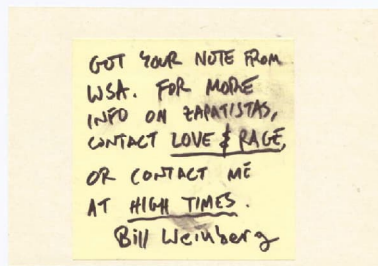 GOT YOUR NOTE FROM
WSA. FOR MORE
INFO ON ZAPATISTAS,
CONTACT LOVE & RAGE,
OR CONTACT ME
AT HIGH TIMES.
Bill Weinberg